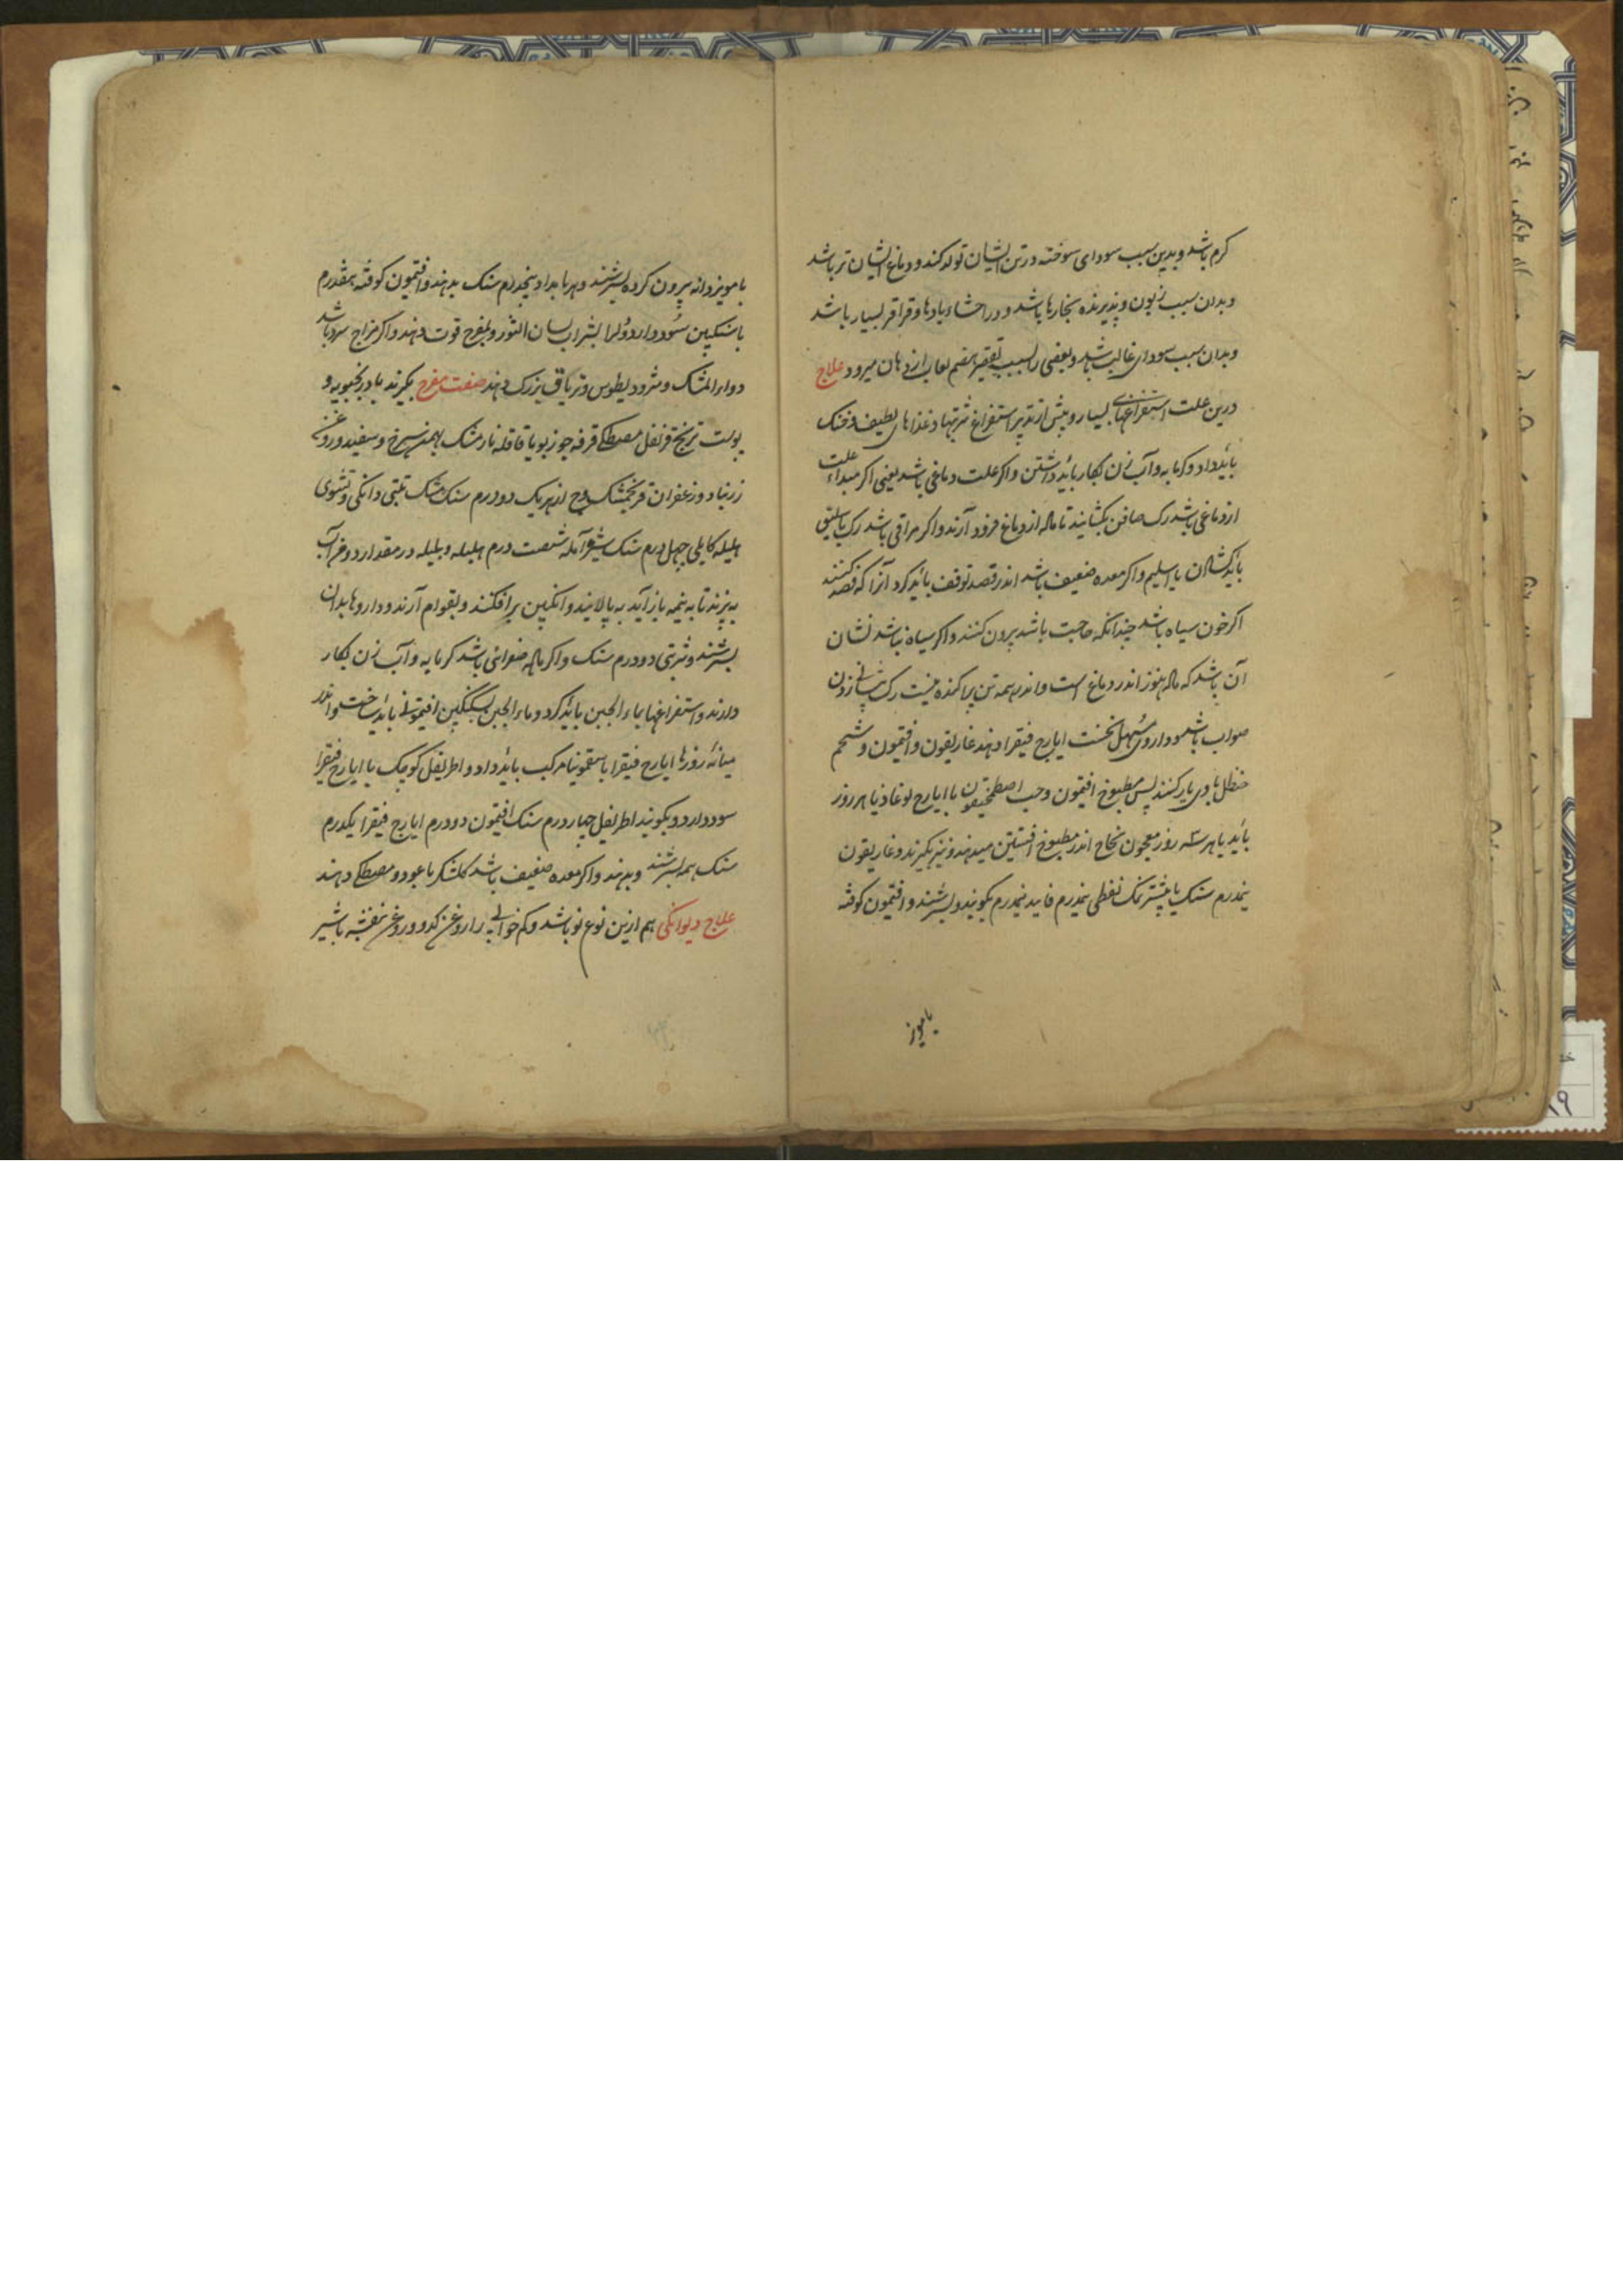 کرم باشد و بدین سبب سودای سوخته در تن ایشان تولد کند و دماغ ایشان تر باشد
و بدان سبب زبون و پذیرنده بخارها باشد و در احشاء بادها و قراقر بسیار باشد
و بدان سبب سودای غالب باشد و بعضی را بسبب تقصیر هضم لعاب از دهان میرود علاج
درین علت استفراغهای بسیار و پیش از تدبیر استفراغ شربتها و غذاهای لطیف و خنک
باید داد و کرمابه و آب زن بکار باید داشتن و اکر علت دماغی باشد یعنی اکر مبداء علت
از دماغی باشد رک صافن بکشایند تا ماده از دماغ فرود آرند و اکر مراقی باشد رک باسلیق
باید کشادن یا اسلیم و اکر معده ضعیف باشد اندر فصد توقف باید کرد آنرا که فصد کنند
اکر خون سیاه باشد چندانکه حاجت باشد بیرون کنند و اکر سیاه نباشد نشان
آن باشد که ماده هنوز اندر دماغ است و اندر همه تن پراکنده نیست رک پیشانی زدن
صواب باشد و داروی مسهل نخست ایارج فیقرا دهند غاریقون و افتیمون و شحم
حنظل با وی یار کنند پس مطبوخ افتیمون و حب اصطمخیقون با ایارج لوغاذیا هر روز
باید یا هر سه روز معجون نجاح اندر مطبوخ افسنتین میدهند و نیز بکیرند و غاریقون
نیمدرم سنک یا بیشتر نمک نفطی نیمدرم فانید نیمدرم بکوبند و بسرشند و افتیمون کوفته
با مویز
با مویز دانه بیرون کرده بسرشند و هر بامداد پنجدرم سنک بدهند و افتیمون کوفته بمقدرم
با سکنجبین سود دارد و لرا بشراب لسان الثور و بمفرح قوت دهند و اکر مزاج سرد باشد
دواء المشک و مثرودیطوس و تریاق بزرک دهند صفت مفرح بکیرند بادرنجبویه و
پوست ترنج قرنفل مصطکی قرفه جوزبویا قاقله نارمشک بهمن سرخ و سفید و درونج
زرنباد و زعفران فرنجمشک وج از هر یک دو درم سنک مشک تبتی دانکی و تسوی
هلیله کابلی چهل درم سنک شیر آمله شصت درم هلیله و بلیله در مقدار دو من آب
بپزند تا به نیمه باز آید بپالایند و انکبین برافکنند و بقوام آرند و داروها بدان
بسرشند و شربتی دو درم سنک و اکر ماده صفرائی باشد کرمابه و آب زن بکار
دارند و استفراغها بماء الجبن باید کرد و ماء الجبن بسکنکبین افتیمونی باید ساخت و اندر
میانه روزها ایارج فیقرا با سقمونیا مرکب باید داد و اطریفل کوچک با ایارج فیقرا
سود دارد و بکویند اطریفل چهار درم سنک افتیمون دو درم ایارج فیقرا یکدرم
سنک همه بسرشند و بدهند و اکر معده ضعیف باشد کلشکر با عود و مصطکی دهند
علاج دیوانکی هم ازین نوع نو باشد و کم خوابی را روغن کدو و روغن بنفشه با شیر